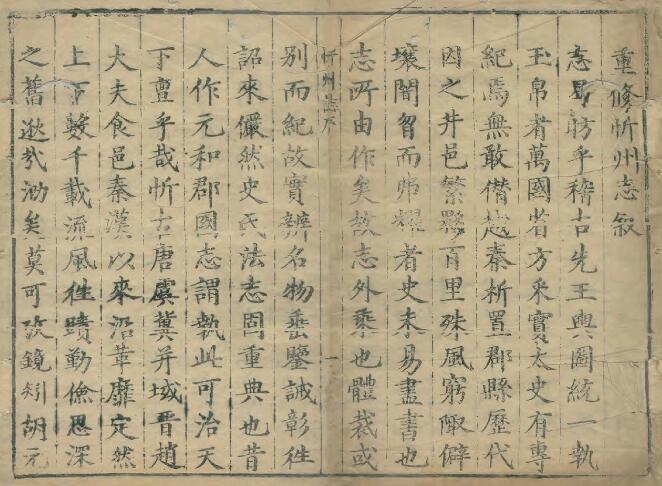 重修忻州志叙
志曷昉乎稽古先王輿圖統一執
玉帛者萬國省方采實太史有專
紀焉無敢僭越秦析置郡縣歷代
因之井邑繁夥百里殊風窮陬僻
壤闇智而弗耀者史未易盡書也
志所由作矣故志外乘也體裁或
忻州志序
一
別而紀故實辨名物垂鑒誡彰徃
詔來儼然史氏法志固重典也昔
人作元和郡國志謂執此可治天
下亶乎哉忻古唐虞冀并域晋趙
大夫食邑秦漢以來沿革靡定然
上下數千載流風徃蹟勤儉思深
之舊逖哉泐矣莫可攷鏡矧胡元